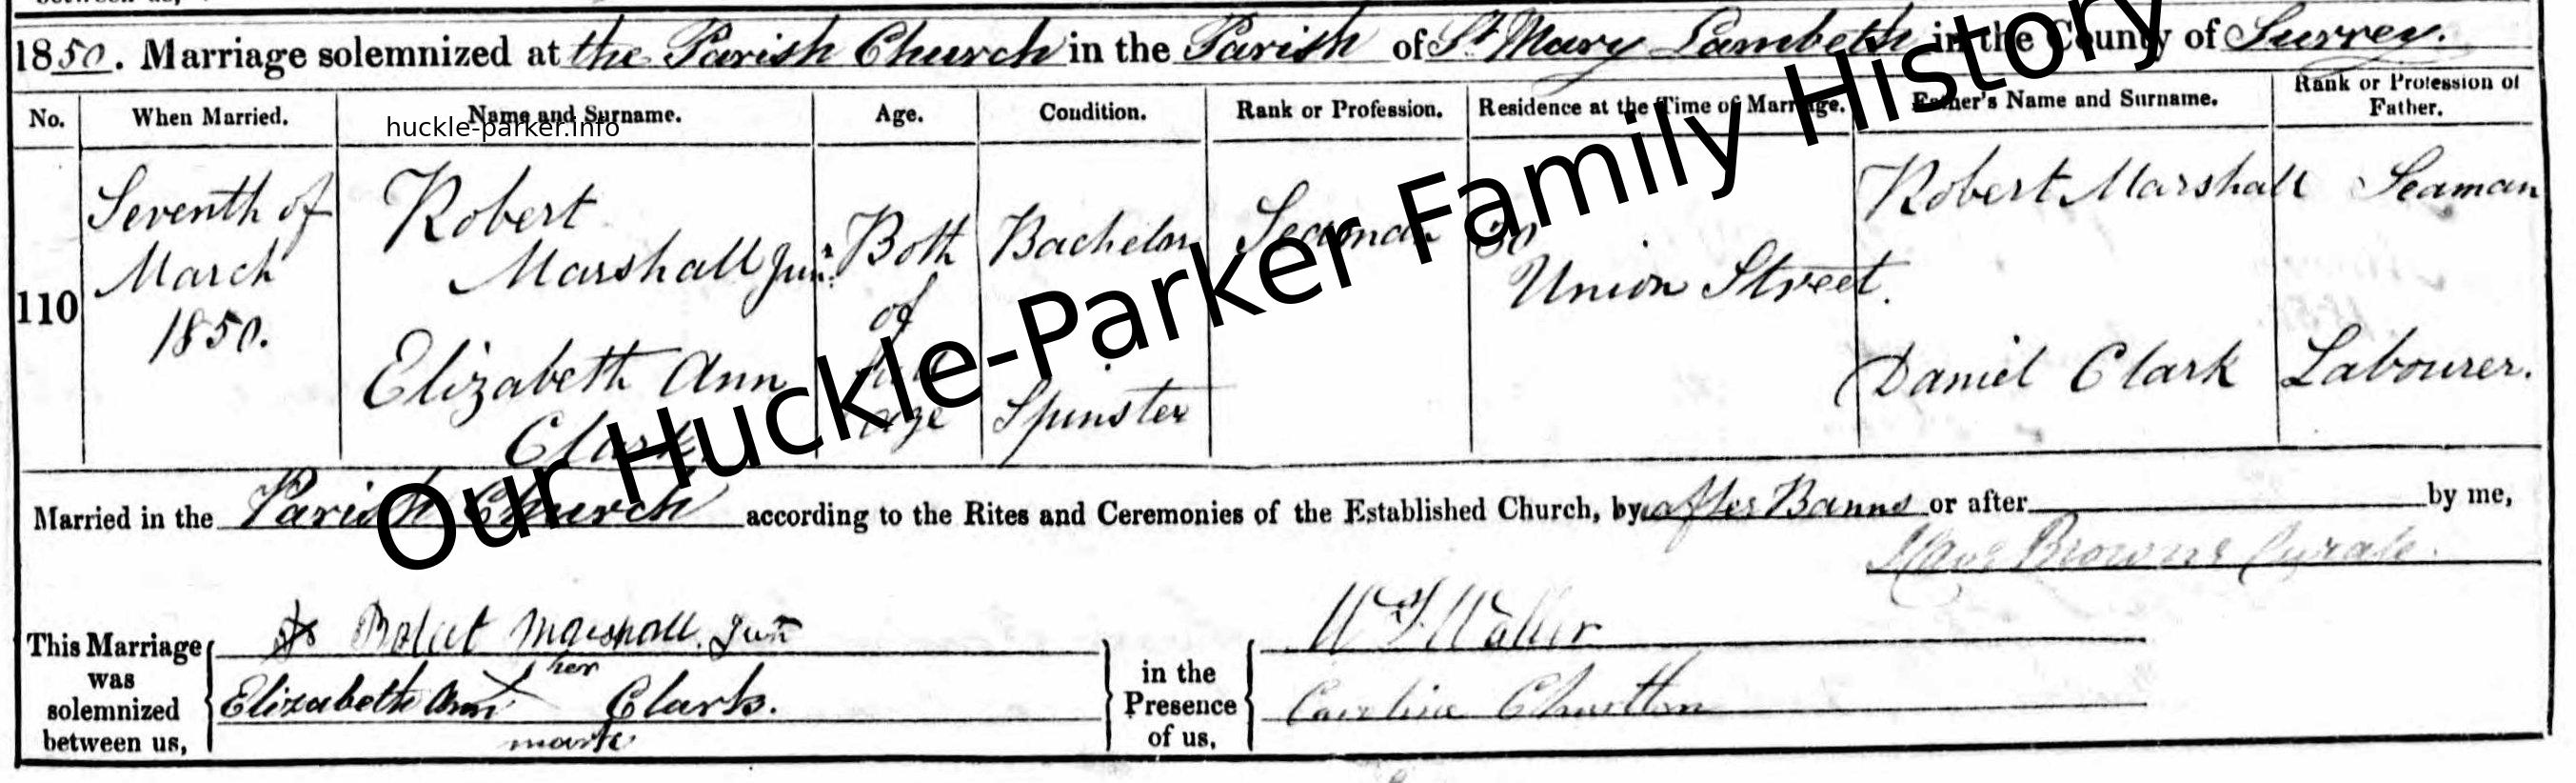 1850. Marriage solemnized at the Parish Church in the Parish of St Mary Lambeth in the County of Surrey.
No. When Married. Name and Surname. Age. Condition. Rank or Profession. Residence at the Time of Marriage. Father's Name and Surname. Rank or Profession of Father.
huckle-parker.info
110
Seventh of
March
1850.
Robert
Marshall Junr.
Elizabeth Ann
Clark
Both
of
full
age
Bachelor
Spinster
Seaman
30
Union Street.
Robert Marshall
Daniel Clark
Seaman
Labourer.
Our Huckle-Parker Family History
Married in the Parish Church according to the Rites and Ceremonies of the Established Church, by after Banns or after by me,
Browne Curate.
This Marriage
was
solemnized
between us,
Robert Marshall Jun
her
Elizabeth Ann X Clark.
mark
in the
Presence
of us,
Waller
Caroline